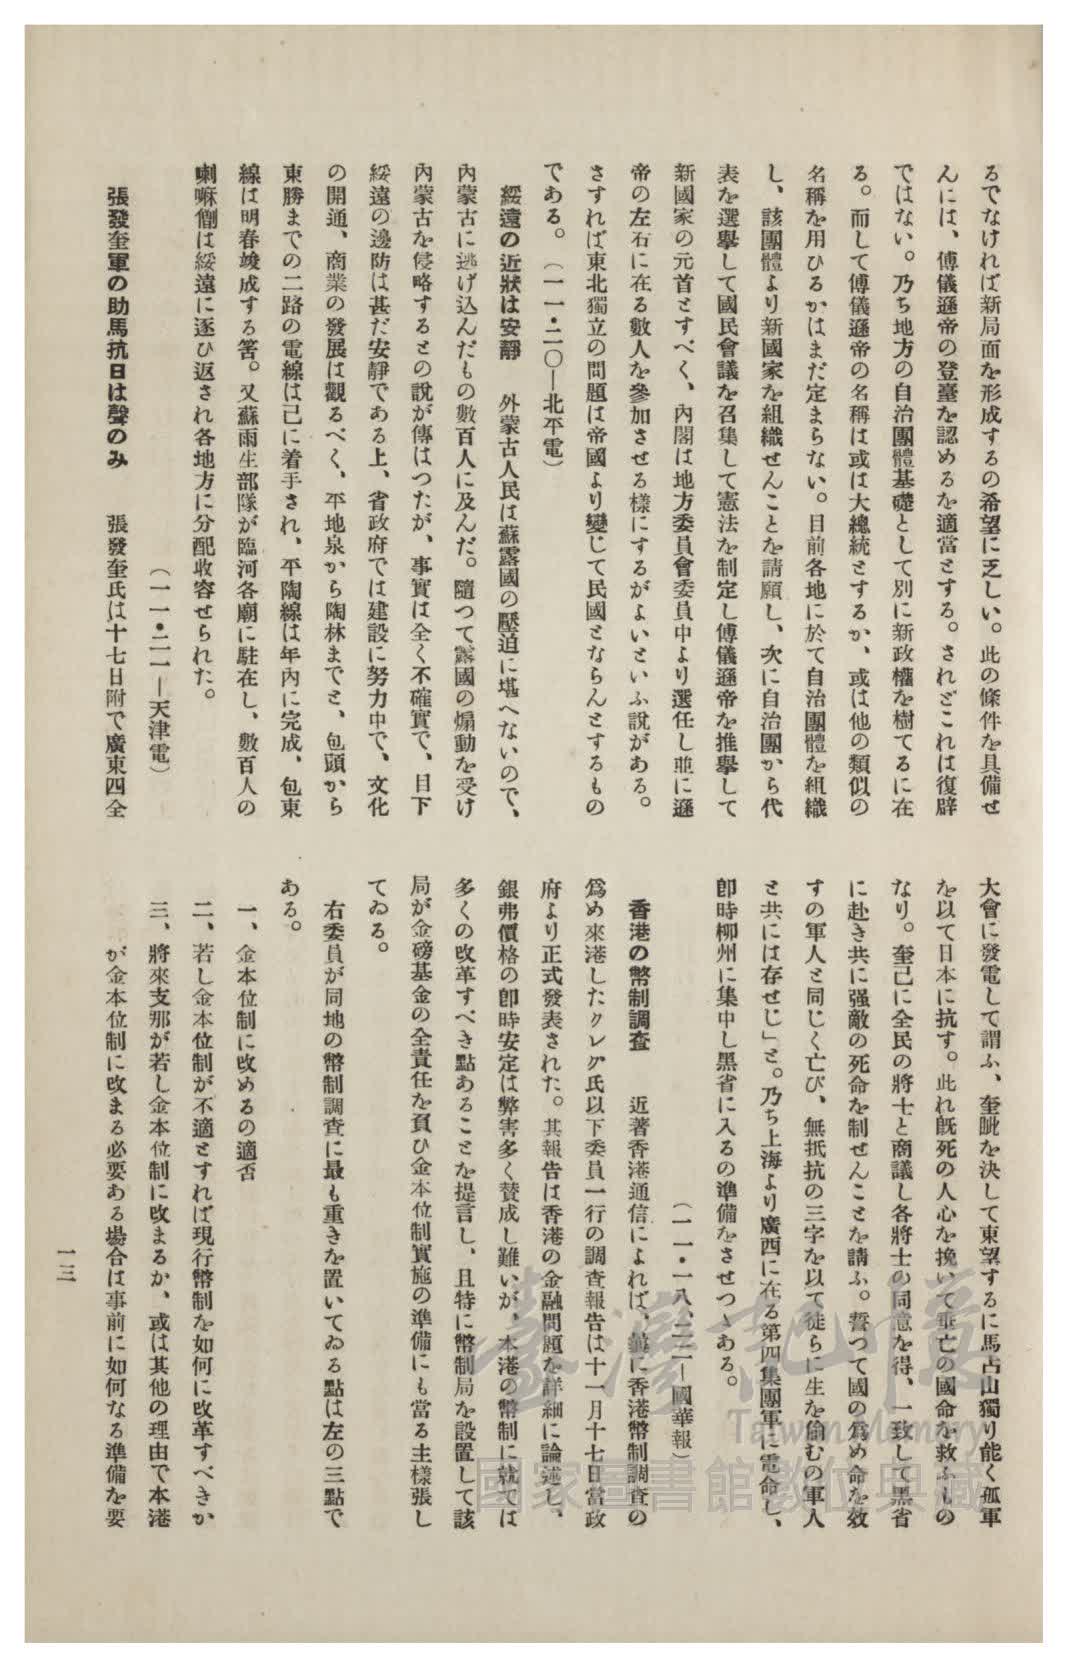 るでなければ新局面を形成するの希望に乏しい。此の條件を具備せ
んには、傅儀遜帝の登臺を認めるを適當とする。されどこれは復辟
ではない。乃ち地方の自治團體基礎として別に新政權を樹てるに在
る。而して傅儀遜帝の名稱は或は大總統とするか、或は他の類似の
名稱を用ひるかはまだ定まらない。目前各地に於て自治團體を組織
し、該團體より新國家を組織せんことを請願し、次に自治團から代
表を選擧して國民會議を召集して憲法を制定し傅儀遜帝を推擧して
新國家の元首とすべく、內閣は地方委員會委員中より選任し並に遜
帝の左右に在る數人を參加させる樣にするがよいといふ說がある。
さすれば東北獨立の問題は帝國より變じて民國とならんとするもの
である。（一一・二〇—北平電）
綏遠の近狀は安靜　外蒙古人民は蘇露國の壓迫に堪へないので、
內蒙古に逃げ込んだもの數百人に及んだ。隨つて露國の煽動を受け
內蒙古を侵略するとの說が傳はつたが、事實は全く不確實で、目下
綏遠の邊防は甚だ安靜である上、省政府では建設に努力中で、文化
の開通、商業の發展は觀るべく、平地泉から陶林までと、包頭から
東勝までの二路の電線は已に着手され、平陶線は年內に完成、包東
線は明春竣成する筈。又蘇雨生部隊が臨河各廟に駐在し、數百人の
喇嘛僧は綏遠に逐ひ返され各地方に分配收容せられた。
（一一・二一—天津電）
張發奎軍の助馬抗日は聲のみ　張發奎氏は十七日附で廣東四全
大會に發電して謂ふ、奎眦を決して東望するに馬占山獨り能く孤軍
を以て日本に抗す。此れ旣死の人心を挽いて垂亡の國命を救ふもの
なり。奎已に全民の將士と商議し各將士の同意を得、一致して黑省
に赴き共に强敵の死命を制せんことを請ふ。誓つて國の爲め命を效
すの軍人と同じく亡び、無抵抗の三字を以て徒らに生を偷むの軍人
と共には存せじ」と。乃ち上海より廣西に在る第四集團軍に電命し、
卽時柳州に集中し黑省に入るの準備をさせつゝある。
（一一・一八、二二—國華報）
香港の幣制調査　近著香港通信によれば、曩に香港幣制調査の
爲め來港したクレグ氏以下委員一行の調査報告は十一月十七日當政
府より正式發表された。其報告は香港の金融問題を詳細に論述し、
銀弗價格の卽時安定は弊害多く賛成し難いが、本港の幣制に就ては
多くの改革すべき點あることを提言し、且特に幣制局を設置して該
局が金磅基金の全責任を負ひ金本位制實施の準備にも當る主樣張し
てゐる。
右委員が同地の幣制調査に最も重きを置いてゐる點は左の三點で
ある。
一、金本位制に改めるの適否
二、若し金本位制が不適とすれば現行幣制を如何に改革すべきか
三、將來支那が若し金本位制に改まるか、或は其他の理由で本港
が金本位制に改まる必要ある場合は事前に如何なる準備を要
一三
臺灣記憶
Taiwan Memory
國家圖書館數位典藏